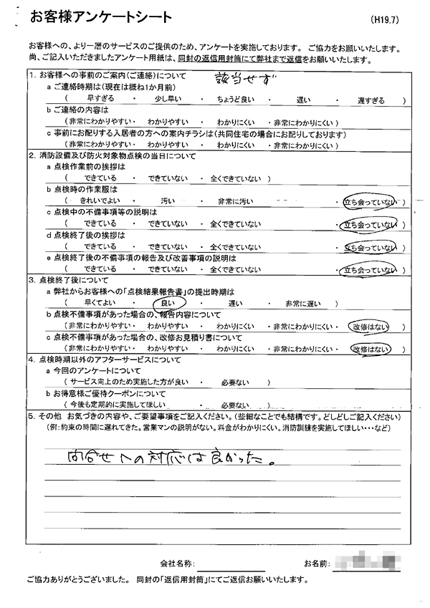 お客様アンケートシート
(H19.7)
お客様への、より一層のサービスのご提供のため、アンケートを実施しております。 ご協力をお願いいたします。
尚、ご記入いただきましたアンケート用紙は、同封の返信用封筒にて弊社まで返信をお願いいたします。
1. お客様への事前のご案内(ご連絡)について 該当せず
a ご連絡時期は(現在は概ね1か月前)
( 早すぎる ・ 少し早い ・ ちょうど良い ・ 遅い ・ 遅すぎる )
b ご連絡の内容は
(非常にわかりやすい・ わかりやすい ・ わかりにくい ・非常にわかりにくい)
c 事前にお配りする入居者の方への案内チラシは(共同住宅の場合にお配りしております)
(非常にわかりやすい・ わかりやすい ・ わかりにくい ・非常にわかりにくい)
2. 消防設備及び防火対象物点検の当日について
a 点検作業前の挨拶は
( できている ・ できていない ・ 全くできていない )
b 点検時の作業服は
( きれいでよい ・ 汚い ・ 非常に汚い ・立ち会っていない)
c 点検中の不備事項等の説明は
( できている ・ できていない ・ 全くできていない ・立ち会っていない)
d 点検終了後の挨拶は
( できている ・ できていない ・ 全くできていない ・立ち会っていない)
e 点検終了後の不備事項の報告及び改善事項の説明は
( できている ・ できていない ・ 全くできていない ・立ち会っていない)
3. 点検終了後について
a 弊社からお客様への「点検結果報告書」の提出時期は
( 早くてよい ・ 良い ・ 遅い ・ 非常に遅い )
b 点検不備事項があった場合の、報告内容について
(非常にわかりやすい・ わかりやすい ・ わかりにくい ・非常にわかりにくい・ 改修はない )
c 点検不備事項があった場合の、改修お見積り書について
(非常にわかりやすい・ わかりやすい ・ わかりにくい ・非常にわかりにくい・ 改修はない )
4. 点検時期以外のアフターサービスについて
a 今回のアンケートについて
( サービス向上のため実施した方が良い ・ 必要ない )
b お得意様ご優待クーポンについて
( 今後も定期的に実施してほしい ・ 必要ない )
5. その他 お気づきの内容や、ご要望事項をご記入ください。(些細なことでも結構です。どしどしご記入ください)
(例:約束の時間に遅れてきた。営業マンの説明がない。料金がわかりにくい。消防訓練を実施してほしい・・・など)
問合せへの対応は良かった。
会社名称: お名前:
ご協力ありがとうございました。 同封の「返信用封筒」にてご返信お願いいたします。